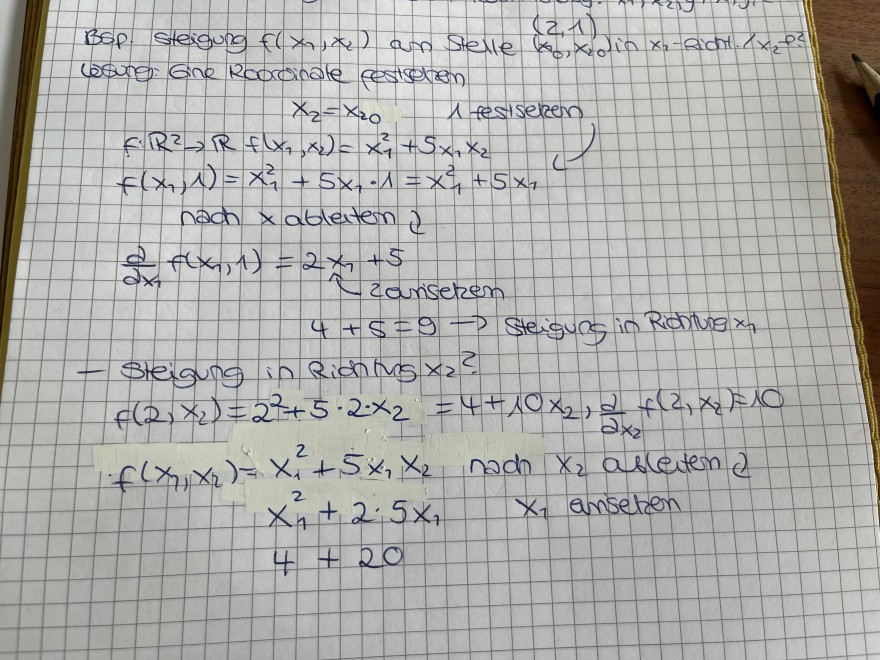 (2,1)
Bsp. Steigung f(x₁,x₂) an Stelle (x₁₀,x₂₀) in x₁-Richt. / x₂-R?
Lösung: Eine Koordinate festsetzen
x₂ = x₂₀ 1 festsetzen
f: ℝ² → ℝ f(x₁,x₂) = x₁² + 5x₁x₂
f(x₁,1) = x₁² + 5x₁·1 = x₁² + 5x₁
nach x ableiten ∂
∂/∂x₁ f(x₁,1) = 2x₁ + 5
2 einsetzen
4 + 5 = 9 → Steigung in Richtung x₁
— Steigung in Richtung x₂?
f(2,x₂) = 2² + 5·2·x₂ = 4 + 10x₂, ∂/∂x₂ f(2,x₂) = 10
f(x₁,x₂) = x₁² + 5x₁x₂ nach x₂ ableiten ∂
x₁² + 2·5x₁ x₁ einsetzen
4 + 20